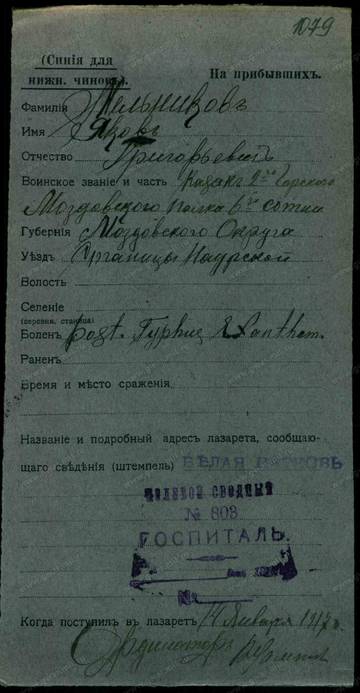 1079
(Синія для
нижн. чиновъ).
На прибывшихъ.
Фамилія Мельниковъ
Имя Яковъ
Отчество Григорьевичъ
Воинское званіе и часть Казакъ 2го Горского
Моздокского полка 6й сотни
Губернія Моздокского Округа
Уѣздъ Станицы Наурской
Волость
Селеніе
(деревня, станица)
Боленъ post. Typhus Exanthem.
Раненъ
Время и мѣсто сраженія
Названіе и подробный адресъ лазарета, сообщаю-
щаго свѣдѣнія (штемпель) БѢЛАЯ ЦЕРКОВЬ
ПОЛЕВОЙ СВОДНЫЙ
№ 803
ГОСПИТАЛЬ.
№
Когда поступилъ въ лазаретъ 14 Января 1917 г.
Ординаторъ